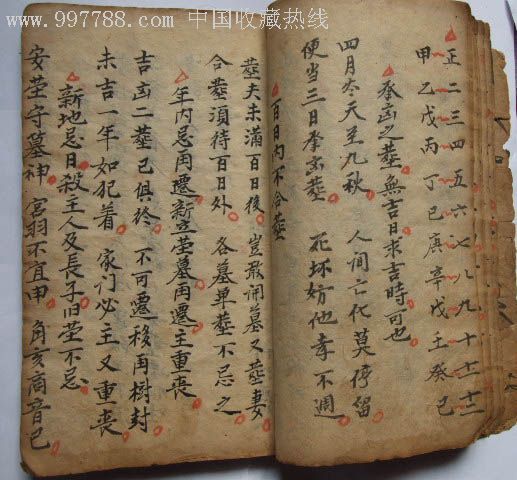 www.997788.com 中国收藏热线
正二三四五六七八九十十一十二
甲乙戊丙丁己庚辛戊壬癸己
凶之葬無吉日求吉時可也
四月冬天至九秋 人间亡化莫停留
便当三日葬 死坏妨他不週
百日內不合葬
葬夫未滿百日後 豈敢開墓又葬妻
合葬須待百日外 各墓单葬不忌之
年内忌再遷新立茔墓再遷主重丧
吉凶二葬已俱终 不可遷移再樹封
未吉一年如犯着 家门必主又重丧
新地忌日殺主人及長子旧茔不忌
安茔守墓神 宮羽不宜申 角亥商音巳